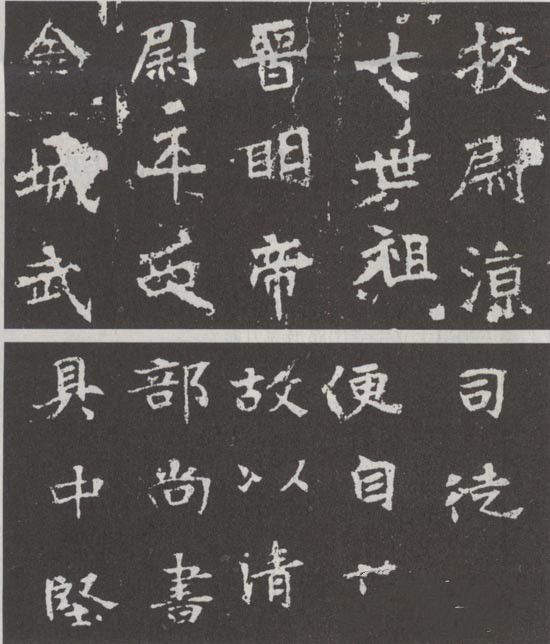 校尉涼
七世祖
晉明帝
尉平西
金城武
司
便自
故以清
部尚書
具中堅